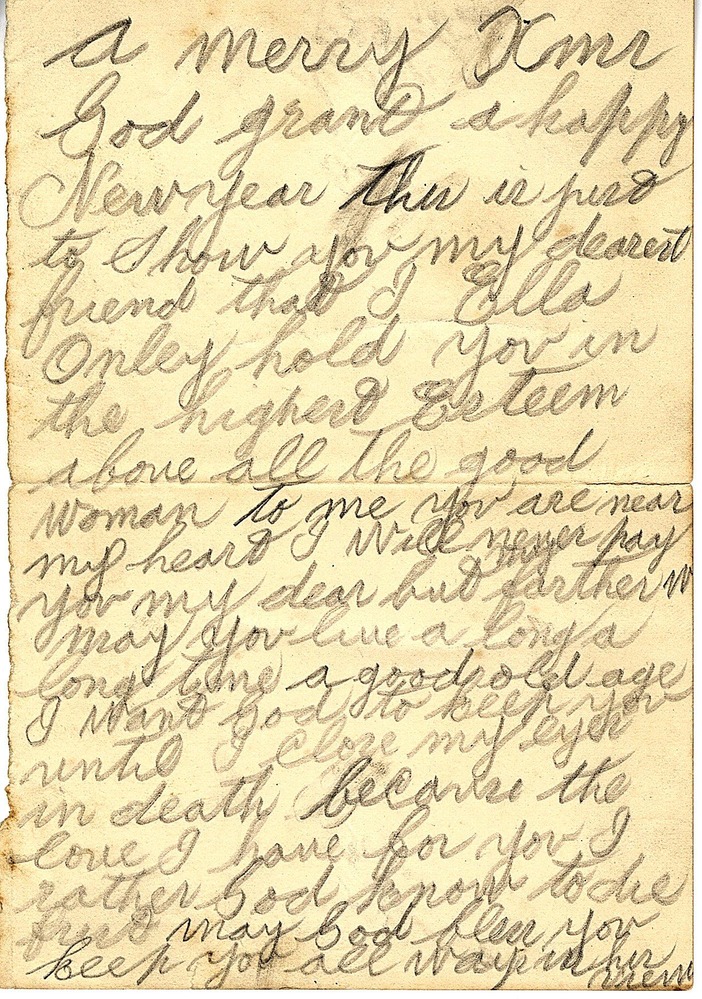 a merry Xms
God grand a happy
New year this is just
to Show you my dearest
friend that I Ella
Onley hold you in
the highest Esteem
above all the good
woman to me you are near
my heart I will never pay
you my dear but my farther w
may you live a long a
long time a good old age
I want God to keep you
until I close my eyes
in death because the
love I have for you I
rather God know to die
first may God bless you
keep you all way in his
view